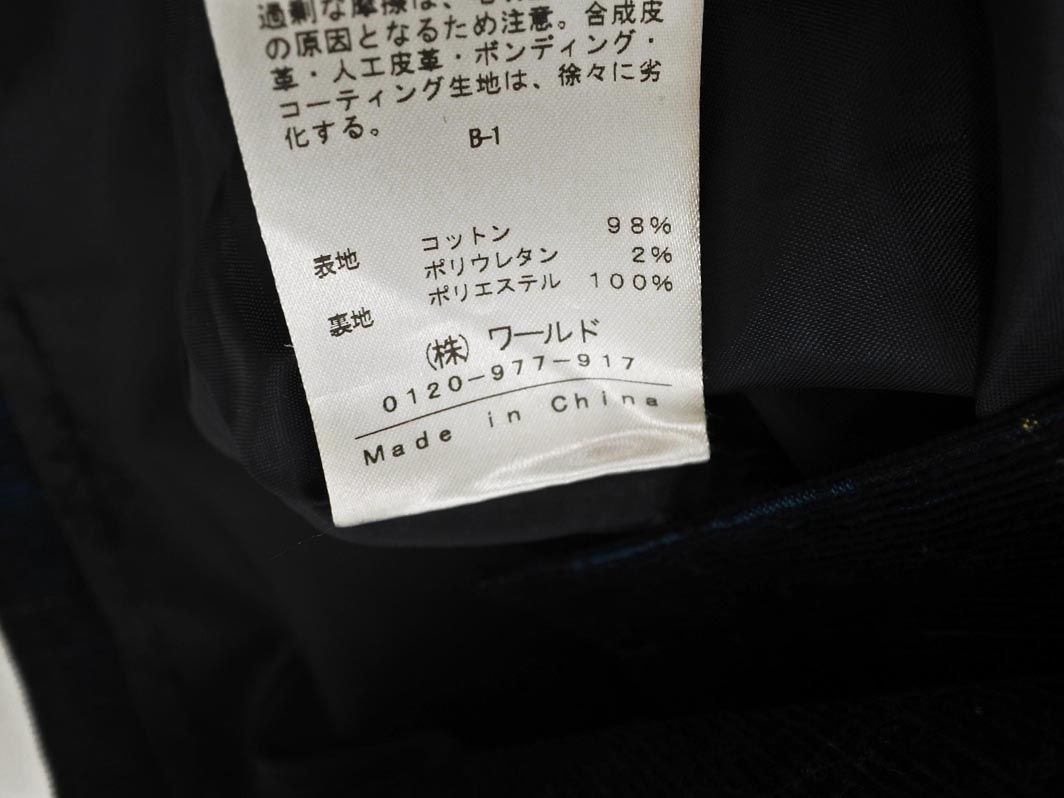 過剰な摩擦は、
の原因となるため注意。合成皮
革・人工皮革・ボンディング・
コーティング生地は、徐々に劣
化する。
B-1
表地 コットン 98%
ポリウレタン 2%
裏地 ポリエステル 100%
(株)ワールド
0120-977-917
Made in China